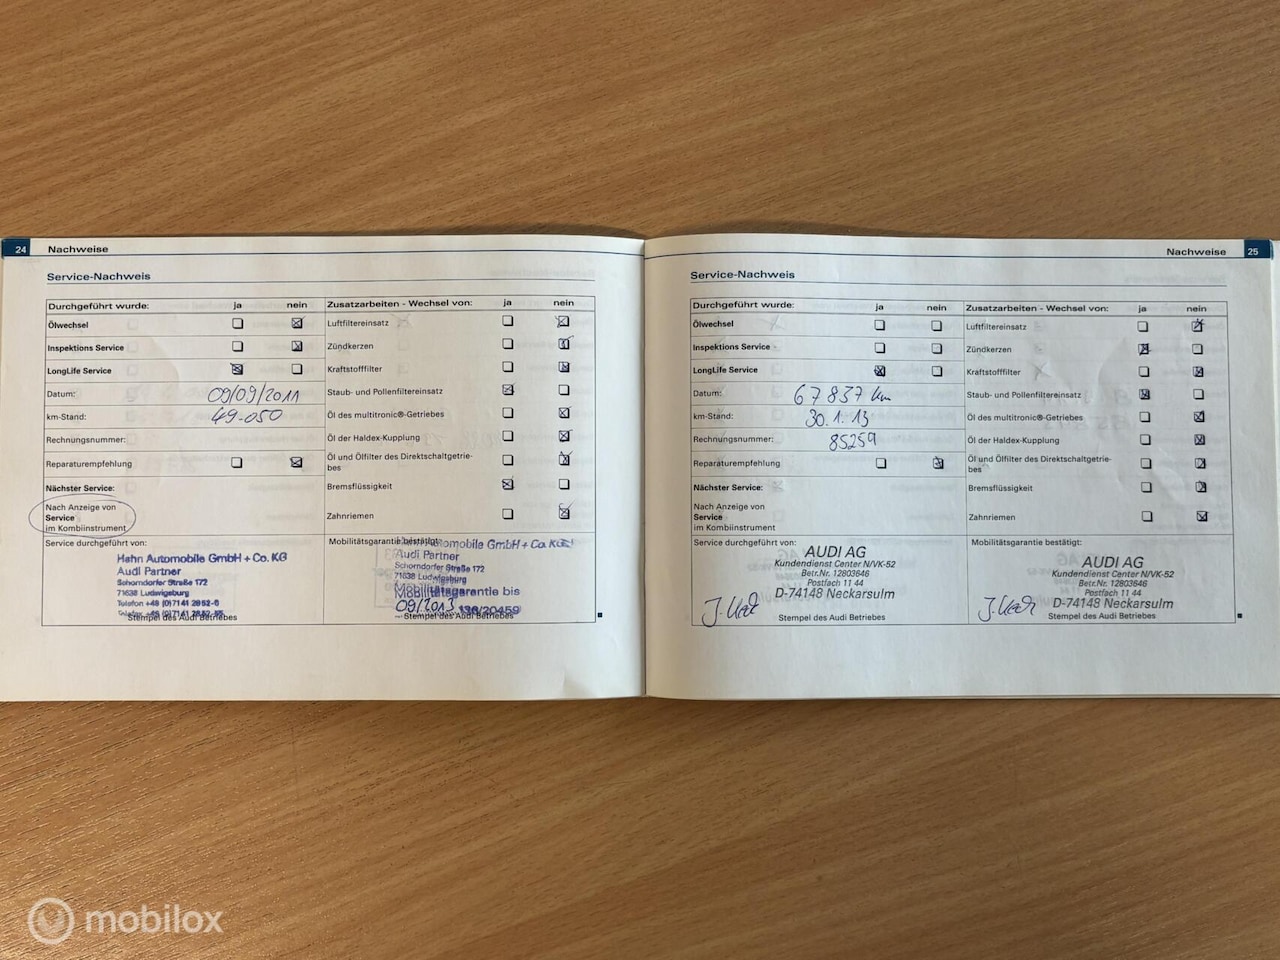 24 Nachweise
Service-Nachweis
Durchgeführt wurde: ja nein
Ölwechsel
Inspektions Service
LongLife Service
Datum: 09/09/2011
km-Stand: 49.050
Rechnungsnummer:
Reparaturempfehlung
Nächster Service:
Nach Anzeige von
Service
im Kombiinstrument
Service durchgeführt von:
Hahn Automobile GmbH + Co. KG
Audi Partner
Schorndorfer Straße 172
71638 Ludwigsburg
Telefon +49 (0)7141 2852-0
Stempel des Audi Betriebes
Zusatzarbeiten - Wechsel von: ja nein
Luftfiltereinsatz
Zündkerzen
Kraftstofffilter
Staub- und Pollenfiltereinsatz
Öl des multitronic®-Getriebes
Öl der Haldex-Kupplung
Öl und Ölfilter des Direktschaltgetrie-
bes
Bremsflüssigkeit
Zahnriemen
Mobilitätsgarantie bestätigt:
Automobile GmbH + Co. KG
Audi Partner
Schorndorfer Straße 172
71638 Ludwigsburg
Mobilitätsgarantie bis
09/2013 136/20459
Stempel des Audi Betriebes
Nachweise 25
Service-Nachweis
Durchgeführt wurde: ja nein
Ölwechsel
Inspektions Service
LongLife Service
Datum: 67837 km
km-Stand: 30.1.13
Rechnungsnummer: 85259
Reparaturempfehlung
Nächster Service:
Nach Anzeige von
Service
im Kombiinstrument
Service durchgeführt von:
AUDI AG
Kundendienst Center N/VK-52
Betr.Nr. 12803646
Postfach 11 44
D-74148 Neckarsulm
Stempel des Audi Betriebes
Zusatzarbeiten - Wechsel von: ja nein
Luftfiltereinsatz
Zündkerzen
Kraftstofffilter
Staub- und Pollenfiltereinsatz
Öl des multitronic®-Getriebes
Öl der Haldex-Kupplung
Öl und Ölfilter des Direktschaltgetrie-
bes
Bremsflüssigkeit
Zahnriemen
Mobilitätsgarantie bestätigt:
AUDI AG
Kundendienst Center N/VK-52
Betr.Nr. 12803646
Postfach 11 44
D-74148 Neckarsulm
Stempel des Audi Betriebes
mobilox